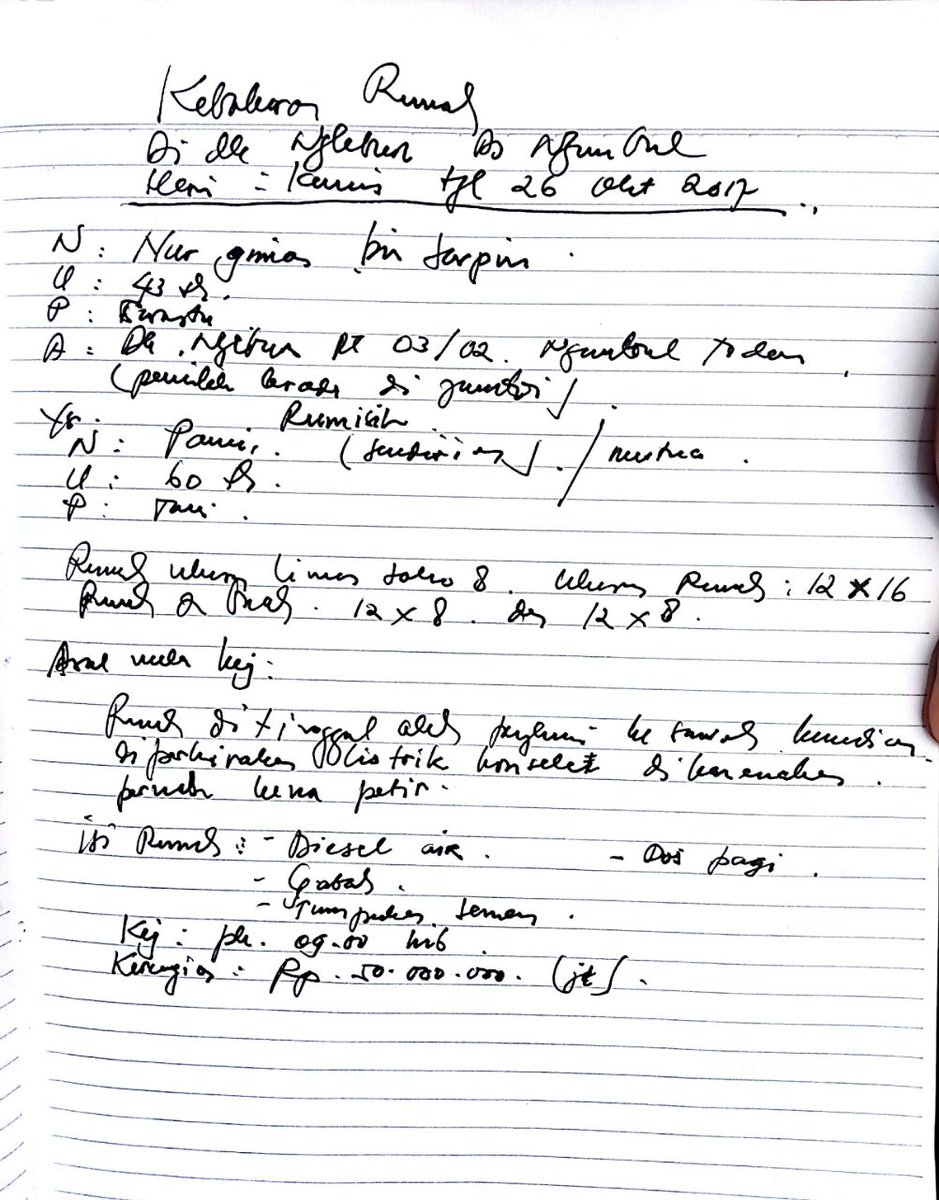 Kebakaran Rumah
Di dk Ngletun Ds Nguntoul
Hari : Kamis tgl 26 Okt 2017
N : Nur bin Sarpin
U : 43 th.
P : Swasta
A : Dk. Rt 03/02. Todan
(pemilik berada di
Yg.
Rumisih
N : Pami. (sendirian) /
U : 60 th.
P : Tani.
Rumah ukuran limas soko 8. Ukuran Rumah : 12 x 16
Rumah 2 12 x 8. dan 12 x 8.
Awal mula kej :
Rumah di tinggal oleh ke sawah kemudian
diperkirakan listrik konselet dikarenakan
pernah kena petir.
isi Rumah : - Diesel air. - Dos pagi.
- Gabah.
-
Kej : pk. 09.00 wib
Kerugian : Rp. 50.000.000. (jt).